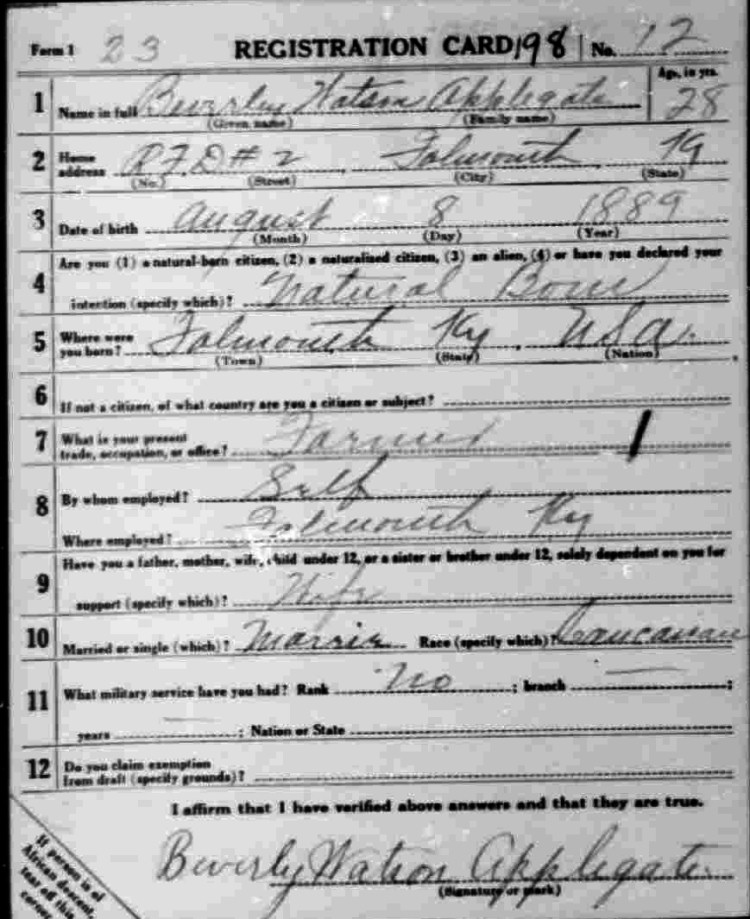 Form 1 23 REGISTRATION CARD 198 No. 12
1 Name in full Beverly Watson Applegate Age, in yrs. 28
(Given name) (Family name)
2 Home address RFD # 2 Falmouth Ky
(No.) (Street) (City) (State)
3 Date of birth August 8 1889
(Month) (Day) (Year)
4 Are you (1) a natural-born citizen, (2) a naturalized citizen, (3) an alien, (4) or have you declared your
intention (specify which)? Natural Born
5 Where were you born? Falmouth Ky. USA.
(Town) (State) (Nation)
6 If not a citizen, of what country are you a citizen or subject?
7 What is your present trade, occupation, or office? Farmer 1
8 By whom employed? Self
Where employed? Falmouth Ky
9 Have you a father, mother, wife, child under 12, or a sister or brother under 12, solely dependent on you for
support (specify which)? Wife
10 Married or single (which)? Married Race (specify which)? Caucasian
11 What military service have you had? Rank No ; branch — ;
years — ; Nation or State
12 Do you claim exemption from draft (specify grounds)?
I affirm that I have verified above answers and that they are true.
Beverly Watson Applegate
(Signature or mark)
If person is of
African descent,
tear off this
corner.